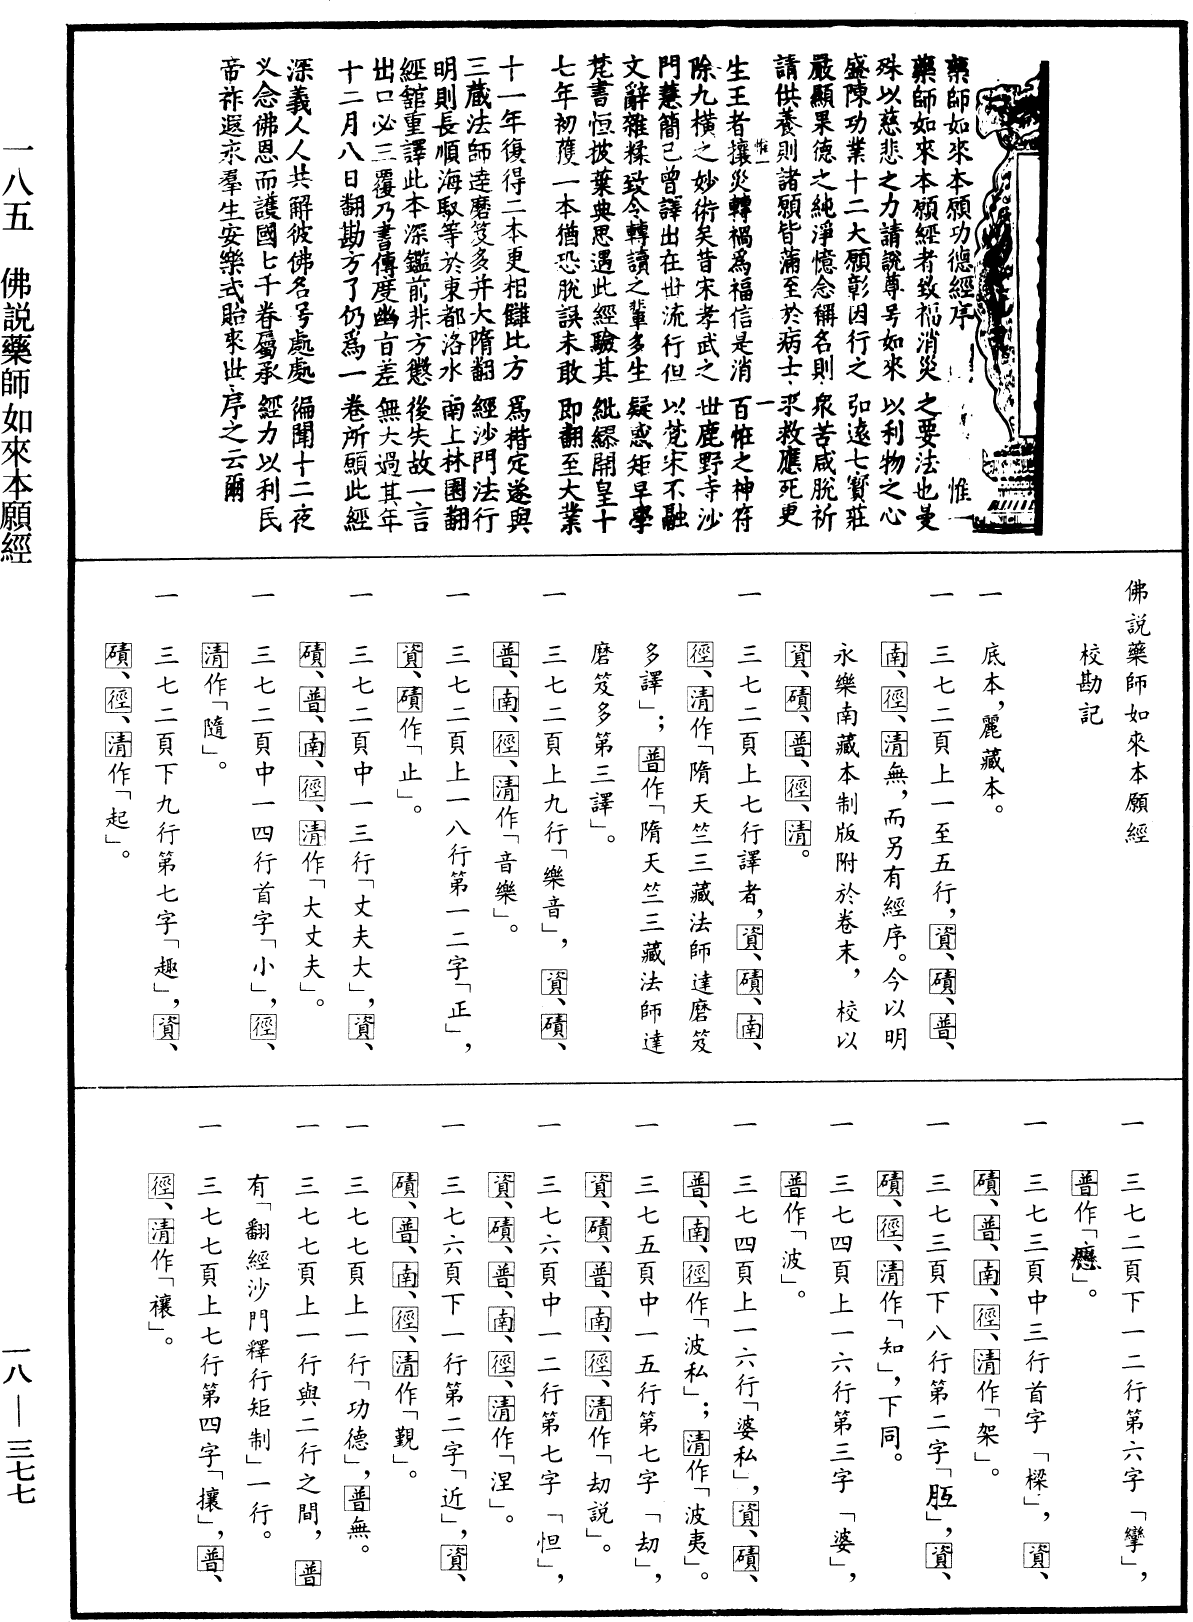 一八五　佛説藥師如來本願經
一八—三七七
藥師如來本願功德經序　惟一
藥師如來本願經者致福消災之要法也曼
殊以慈悲之力請説尊号如來以利物之心
盛陳功業十二大願彰因行之弘遠七寳莊
嚴顯果德之純淨憶念稱名則衆苦咸脱祈
請供養則諸願皆滿至於病士求救應死更
惟一　一
生王者攘災轉禍爲福信是消百恠之神符
除九橫之妙術矣昔宋孝武之世鹿野寺沙
門慧簡已曾譯出在世流行但以梵宋不融
文辭雜糅致令轉讀之輩多生疑惑矩早學
梵書恒披葉典思遇此經驗其紕繆開皇十
七年初獲一本猶恐脱誤未敢即翻至大業
十一年復得二本更相讎比方爲揩定遂與
三藏法師達磨笈多并大隋翻經沙門法行
明則長順海馭等於東都洛水南上林園翻
經舘重譯此本深鑑前非方懲後失故一言
出口必三覆乃書傳度幽旨差無大過其年
十二月八日翻勘方了仍爲一卷所願此經
深義人人共解彼佛名号處處徧聞十二夜
义念佛恩而護國七千眷屬承經力以利民
帝祚遐永羣生安樂式貽來世序之云爾
佛説藥師如來本願經
校勘記
一　底本，麗藏本。
一　三七二頁上一至五行，資、磧、普、
南、徑、清無，而另有經序。今以明
永樂南藏本制版附於卷末，校以
資、磧、普、徑、清。
一　三七二頁上七行譯者，資、磧、南、
徑、清作「隋天竺三藏法師達磨笈
多譯」；普作「隋天竺三藏法師達
磨笈多第三譯」。
一　三七二頁上九行「樂音」，資、磧、
普、南、徑、清作「音樂」。
一　三七二頁上一八行第一二字「正」，
資、磧作「止」。
一　三七二頁中一三行「丈夫大」，資、
磧、普、南、徑、清作「大丈夫」。
一　三七二頁中一四行首字「小」，徑、
清作「隨」。
一　三七二頁下九行第七字「趣」，資、
磧、徑、清作「起」。
一　三七二頁下一二行第六字「攣」，
普作「癴」。
一　三七三頁中三行首字「樑」，資、
磧、普、南、徑、清作「架」。
一　三七三頁下八行第二字「胝」，資、
磧、徑、清作「知」，下同。
一　三七四頁上一六行第三字「婆」，
普作「波」。
一　三七四頁上一六行「婆私」，資、磧、
普、南、徑作「波私」；清作「波夷」。
一　三七五頁中一五行第七字「劫」，
資、磧、普、南、徑、清作「劫説」。
一　三七六頁中一二行第七字「怛」，
資、磧、普、南、徑、清作「涅」。
一　三七六頁下一行第二字「近」，資、
磧、普、南、徑、清作「觀」。
一　三七七頁上一行「功德」，普無。
一　三七七頁上一行與二行之間，普
有「翻經沙門釋行矩制」一行。
一　三七七頁上七行第四字「攘」，普、
徑、清作「禳」。